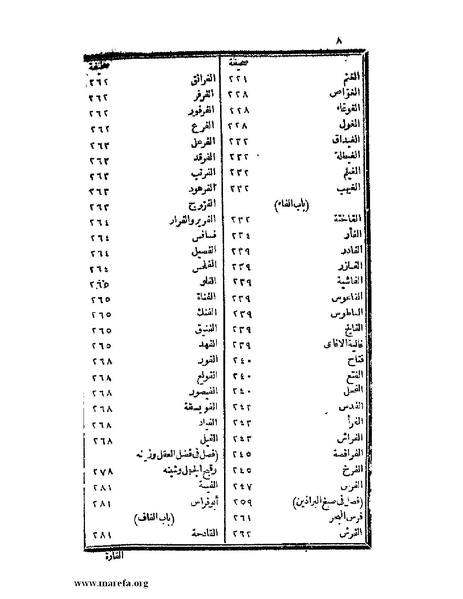 ٨
صحيفة
الغنم ٢٢١
الغواص ٢٢٨
الغوغاء ٢٢٨
الغول ٢٢٨
الغيداق ٢٣٢
الغيطلة ٢٣٢
الغيلم ٢٣٢
الغيهب ٢٣٢
(باب الفاء)
الفاختة ٢٣٢
الفأر ٢٣٤
الفادر ٢٣٩
الفازر ٢٣٩
الفاشية ٢٣٩
الفاعوس ٢٣٩
الفاطوس ٢٣٩
الفالج ٢٣٩
فالية الافاعى ٢٣٩
فتاح ٢٤٠
الفتع ٢٤٠
الفحل ٢٤٠
الفدس ٢٤٣
الفرأ ٢٤٣
الفراش ٢٤٣
الفرافصة ٢٤٥
الفرخ ٢٤٥
الفرس ٢٤٧
(فصل فى صبغ البراذين) ٢٥٩
فرس البحر ٢٦١
الفرش ٢٦٢
صحيفة
الفرانق ٢٦٢
الفرفر ٢٦٢
الفرفور ٢٦٢
الفرع ٢٦٢
الفرعل ٢٦٣
الفرقد ٢٦٣
الفرنب ٢٦٣
الفرهود ٢٦٣
الفروج ٢٦٣
الفرير والفرار ٢٦٤
فسافس ٢٦٤
الفصيل ٢٦٤
الفلحس ٢٦٤
الفلو ٢٦٥
الفناة ٢٦٥
الفنك ٢٦٥
الفنيق ٢٦٥
الفهد ٢٦٥
الفور ٢٦٨
الفولع ٢٦٨
الفيصور ٢٦٨
الفويسقة ٢٦٨
الفياد ٢٦٨
الفيل ٢٦٨
(فصل فى فضل العقل وزينه
وقبح الجهل وشينه ٢٧٨
الفينة ٢٨١
أبو فراس ٢٨١
(باب القاف)
القادحة ٢٨١
القارة
www.marefa.org